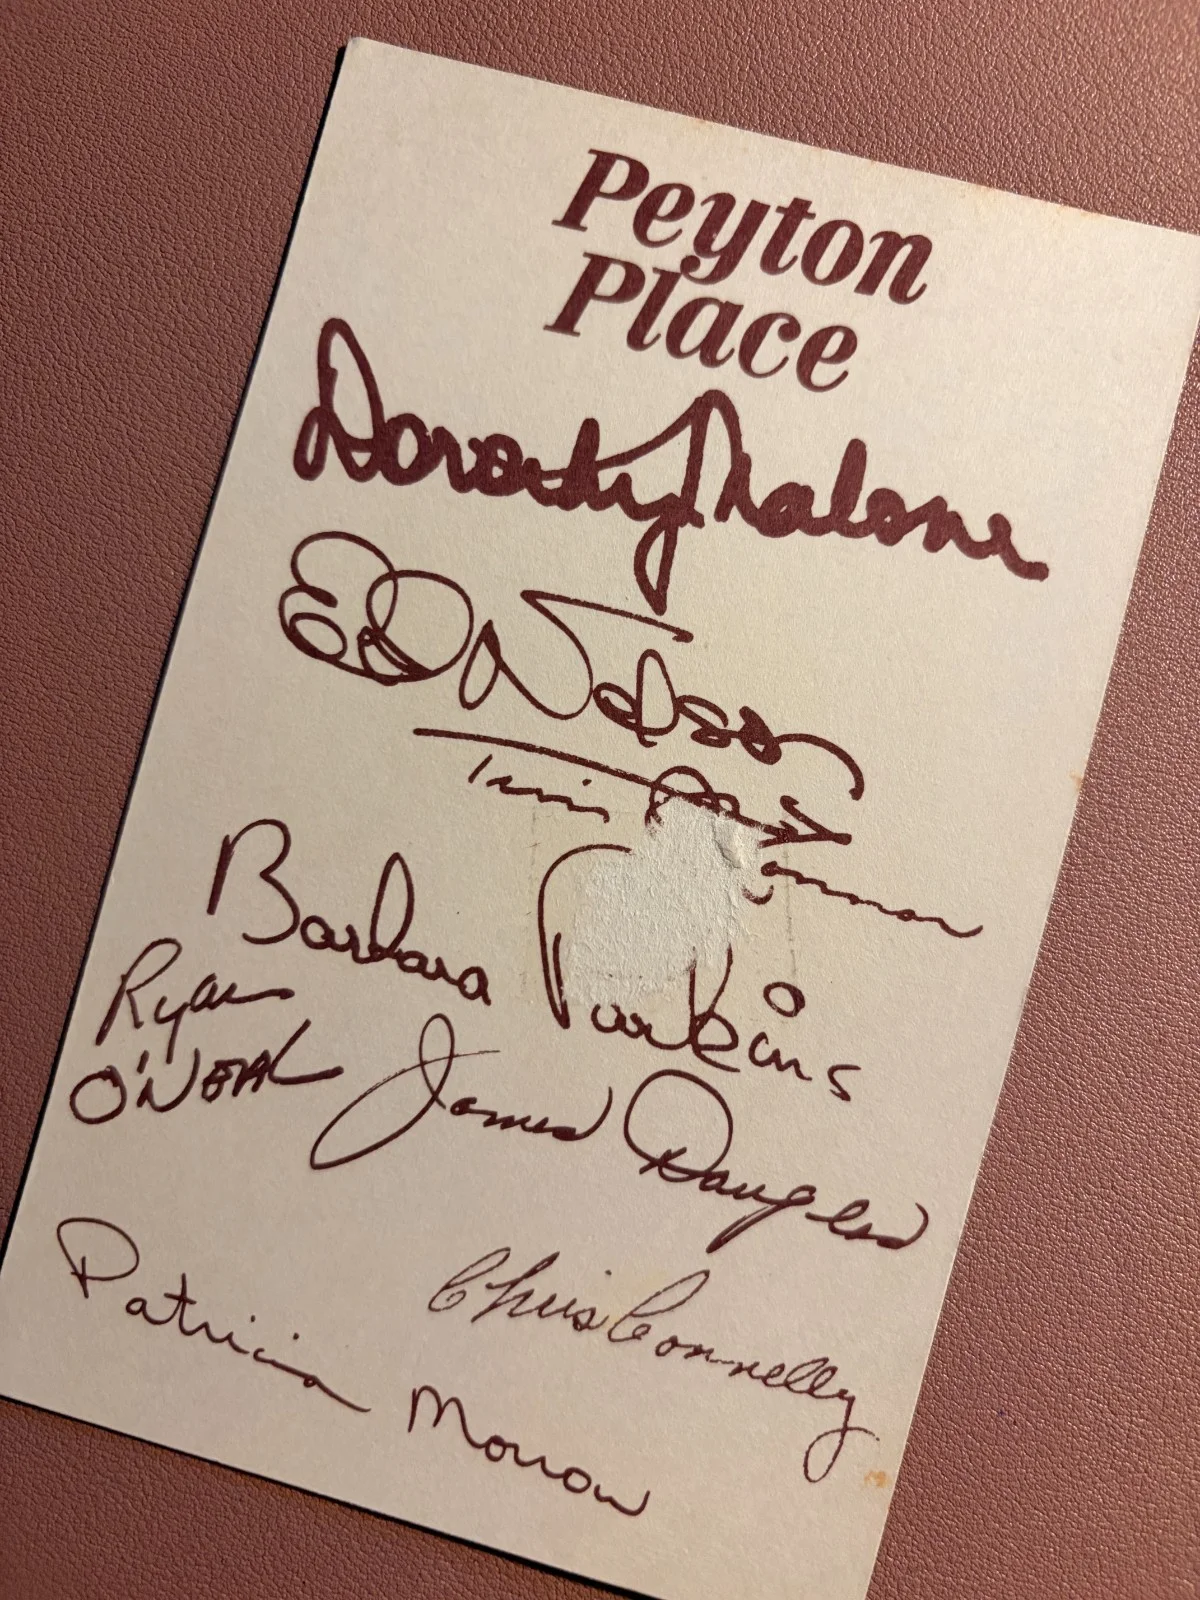 Peyton
Place
Dorothy Malone
Ed Nelson
Tim
Barbara Parkins
Ryan
O'NEAL
James Douglas
Chris Connelly
Patricia Morrow